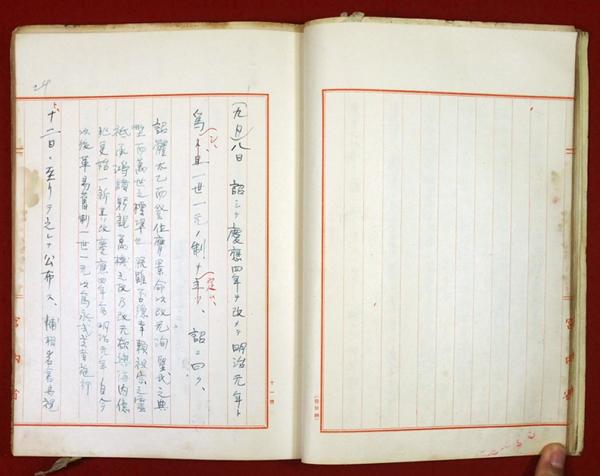 九月八日 詔シテ慶應四年ヲ改メテ明治元年ト
爲シ、且一世一元ノ制ヲ定ム、詔ニ曰ク、
詔體太乙而登位膺景命以改元洵聖代之典
型而萬世之標準也朕雖否德幸賴祖宗之靈
祇承鴻緒躬親萬機之政乃改元欲與海内億
兆更始一新其改慶應四年爲明治元年自今
以後革易舊制一世一元以爲永式主者施行
十二日ニ至リテ之レヲ公布ス、輔相岩倉具視
宮内省